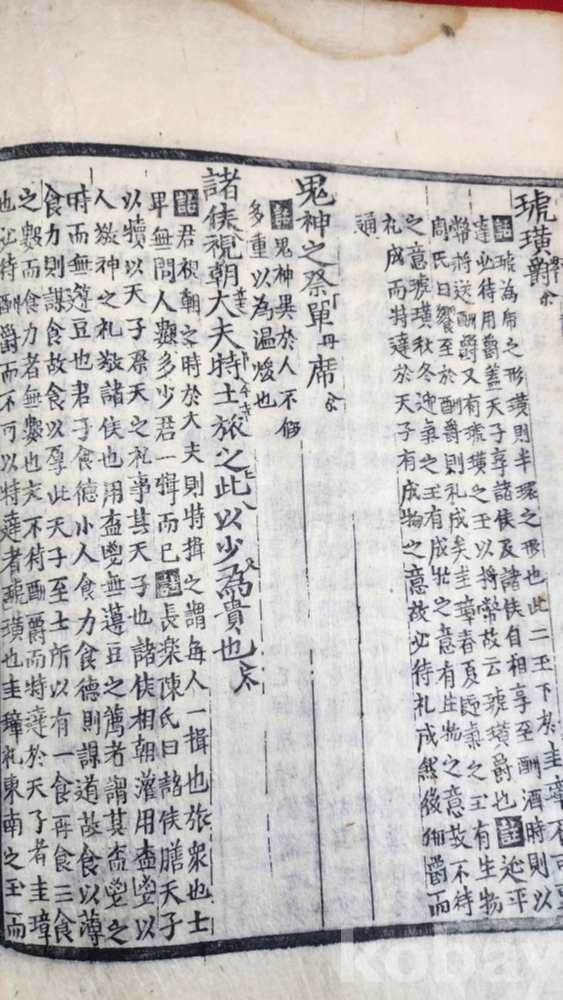 琥璜爵
註琥為虎之形璜則半環之形也此二玉下於圭璋不可專
達必待用爵盖天子享諸侯及諸侯自相享至酬酒時則以
幣將送酬爵又有琥璜之玉以將幣故云琥璜爵也註延平
周氏曰饗至於酬爵則礼成矣圭璋春夏迎氣之玉有生物
之意琥璜秋冬迎氣之玉有成物之意有生物之意故不待
礼成而特達於天子有成物之意故必待礼成然後爵而
通
鬼神之祭單席
註鬼神異於人不假
多重以為温煖也
諸侯視朝大夫特士旅之此以少為貴也
註君視朝之時於大夫則特揖之謂每人一揖也旅衆也士
卑無問人數多少君一揖而已註長楽陳氏曰諸侯膳天子
以犢以天子祭天之礼事其天子也諸侯相朝灌用欝鬯以
人敬神之礼敬諸侯也用欝鬯無籩豆之薦者謂其欝鬯之
時而無籩豆也君子食德小人食力食德則謀道故食以薄
食力則謀食故食以厚此天子至士所以有一食再食三食
之數而食力者無數也夫不待酬爵而特達於天子者圭璋
也必待酬爵而不可以特達者琥璜也圭璋礼東南之玉而
kobay